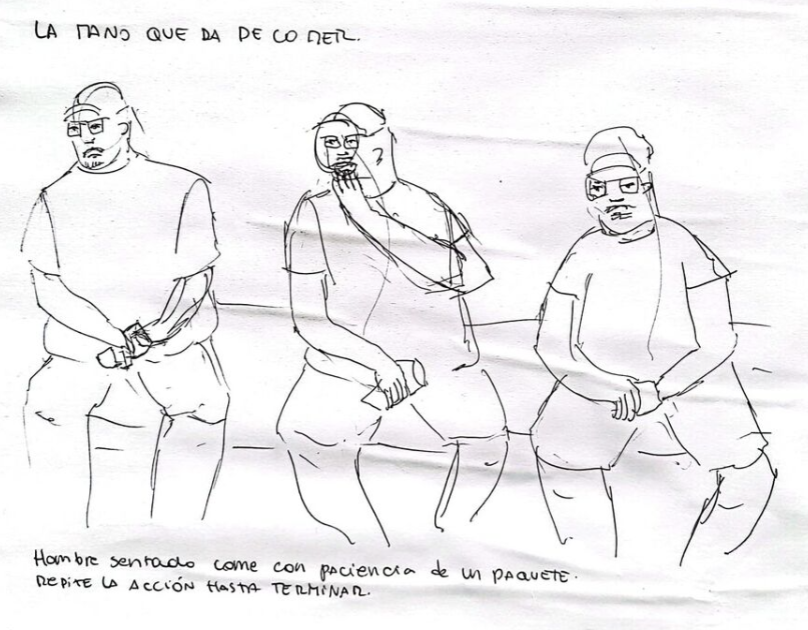 LA MANO QUE DA DE COMER.
Hombre sentado come con paciencia de un PAQUETE.
REPITE LA ACCIÓN HASTA TERMINAR.